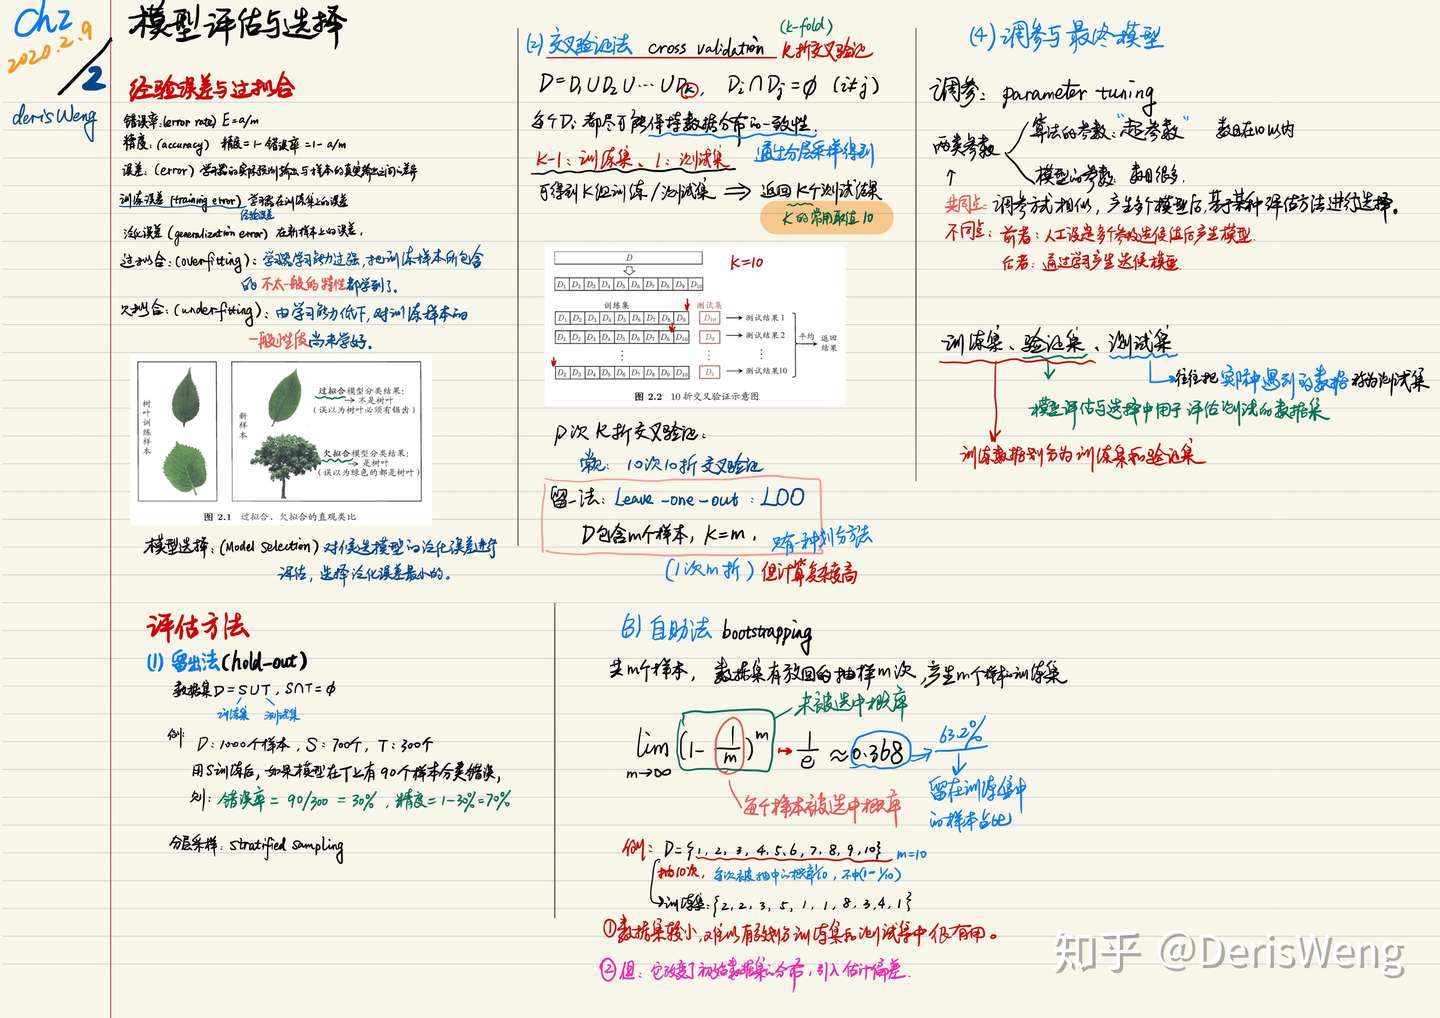 Ch2
2020.2.9
/2
derisWeng
模型评估与选择
经验误差与过拟合
错误率:(error rate) E=a/m
精度:(accuracy) 精度=1-错误率=1-a/m
误差:(error) 学习器的实际预测输出与样本的真实输出之间的差异
训练误差(training error) 学习器在训练集上的误差
经验误差
泛化误差(generalization error) 在新样本上的误差.
过拟合:(overfitting):学习器学习能力过强,把训练样本所包含
的不太一般的特性都学到了.
欠拟合:(underfitting):由学习能力低下,对训练样本的
一般性质尚未学好.
树叶训练样本
新样本
过拟合模型分类结果:
→ 不是树叶
(误以为树叶必须有锯齿)
欠拟合模型分类结果:
→ 是树叶
(误以为绿色的都是树叶)
图 2.1 过拟合、欠拟合的直观类比
模型选择:(Model Selection) 对候选模型的泛化误差进行
评估,选择泛化误差最小的。
评估方法
(1) 留出法(hold-out)
数据集D=S∪T, S∩T=ϕ
训练集 测试集
例: D:1000个样本, S:700个, T:300个
用S训练后,如果模型在T上有90个样本分类错误,
则: 错误率=90/300=30%, 精度=1-30%=70%
分层采样: stratified sampling
(2) 交叉验证法 cross validation (k-fold) K折交叉验证
D=D₁∪D₂∪…∪Dⓚ, Di∩Dj=ϕ (i≠j)
每个Di都尽可能保持数据分布的一致性.
通过分层采样得到
K-1:训练集、1:测试集
可得到K组训练/测试集 ⇒ 返回K个测试结果
K的常用取值10
K=10
D
D₁ D₂ D₃ D₄ D₅ D₆ D₇ D₈ D₉ D₁₀
训练集 测试集
D₁ D₂ D₃ D₄ D₅ D₆ D₇ D₈ D₉ D₁₀ → 测试结果1
D₁ D₂ D₃ D₄ D₅ D₆ D₇ D₈ D₁₀ D₉ → 测试结果2
平均 返回结果
D₂ D₃ D₄ D₅ D₆ D₇ D₈ D₉ D₁₀ D₁ → 测试结果10
图 2.2 10 折交叉验证示意图
p次K折交叉验证:
常见: 10次10折交叉验证
留一法: Leave-one-out: LOO
D包含m个样本, K=m, 只有一种划分方法
(1次m折) 但计算复杂度高
(3) 自助法 bootstrapping
共m个样本, 数据集有放回的抽样m次,产生m个样本的训练集
未被选中概率
lim m→∞ (1-1/m)^m → 1/e ≈ 0.368 → 63.2%
每个样本被选中概率
留在训练集中
的样本占比
例: D={1,2,3,4,5,6,7,8,9,10} m=10
抽10次, 每次被抽中的概率1/10, 不中(1-1/10)
→训练集:{2,2,3,5,1,1,8,3,4,1}
①数据集较小,难以有效划分训练集和测试集中很有用。
②但: 它改变了初始数据集的分布,引入估计偏差.
(4) 调参与最终模型
调参: parameter tuning
两类参数
算法的参数:"超参数" 数目在10以内
模型的参数: 数目很多.
共同点: 调参方式相似,产生多个模型后,基于某种评估方法进行选择。
不同点: 前者:人工设定多个参数候选值后产生模型.
后者:通过学习产生候选模型.
训练集、验证集、测试集
往往把实际中遇到的数据称为测试集
模型评估与选择中用于评估测试的数据集
训练数据划分为训练集和验证集
知乎 @DerisWeng